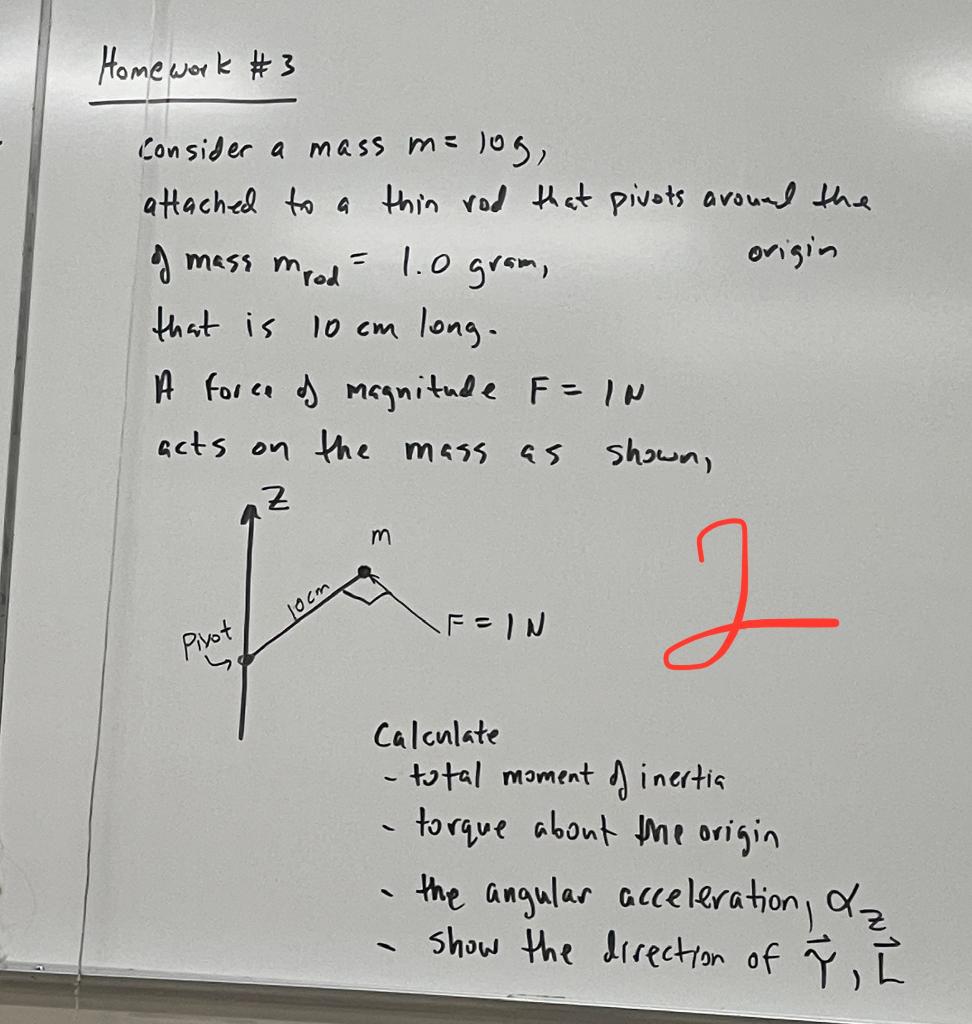 Homework #3
Consider a mass m = 10g,
attached to a thin rod that pivots around the
origin
of mass m_rod = 1.0 gram,
that is 10 cm long.
A force of magnitude F = 1 N
acts on the mass as shown,
Z
m
10cm
Pivot
F = 1 N
2
Calculate
- total moment of inertia
- torque about the origin
- the angular acceleration, α_z
- show the direction of τ⃗, L⃗